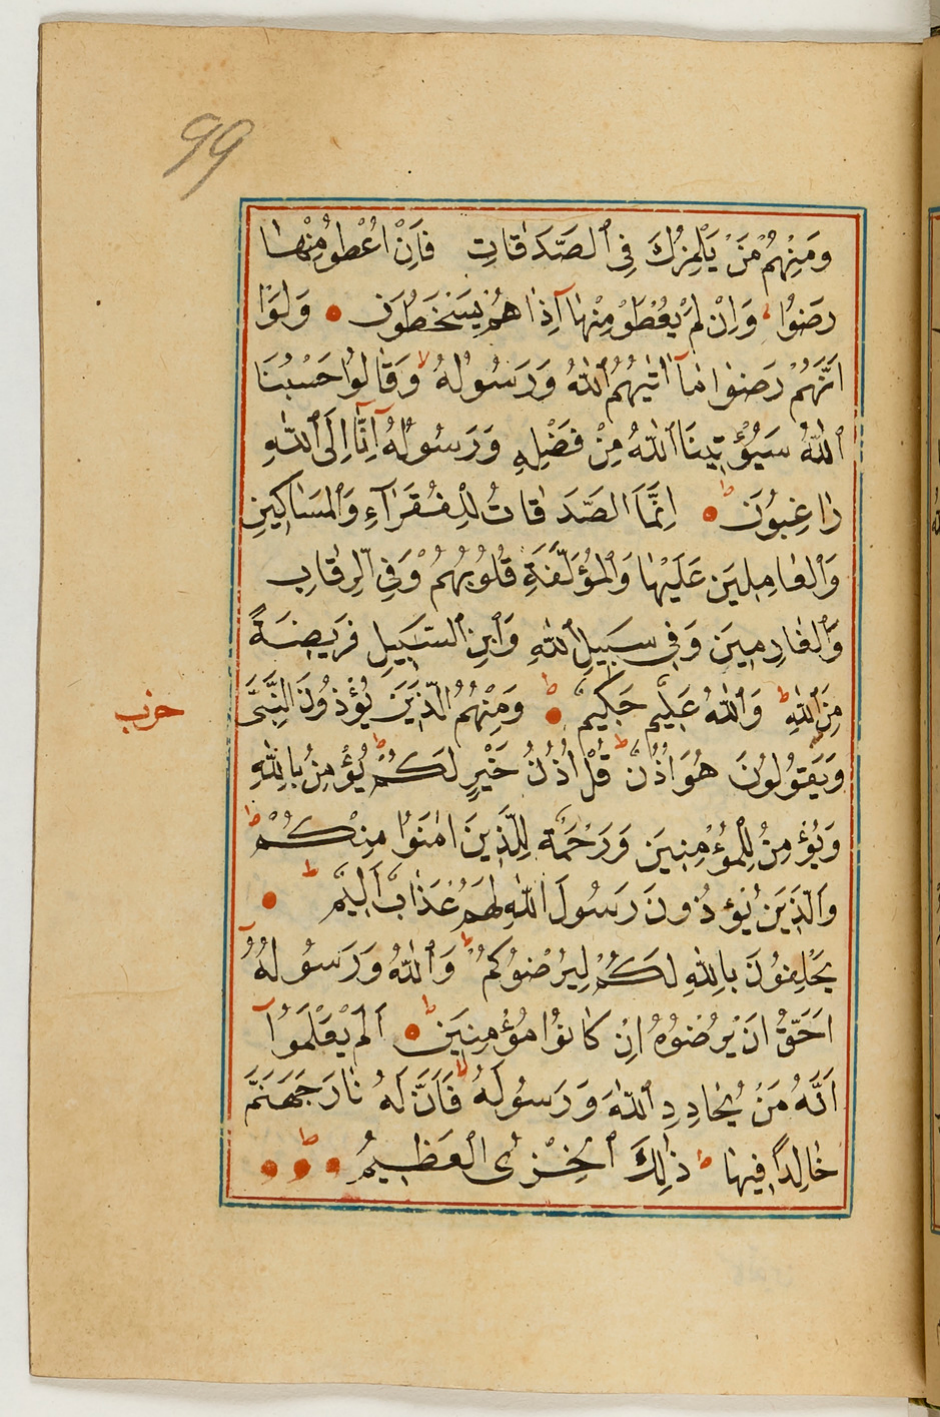 99
وَمِنْهُمْ مَنْ يَلْمِزُكَ فِى ٱلصَّدَقَاتِ فَاِنْ اُعْطُو مِنْهَا
رَضُوا وَاِنْ لَمْ يُعْطَوْ مِنْهَا آِذَا هُمْ يَسْخَطُونَ وَلَوْ
اَنَّهُمْ رَضُوا مَآ اٰتٰيهُمُ ٱللّٰهُ وَرَسُولُهُ وَقَالُوا حَسْبُنَا
ٱللّٰهُ سَيُؤْتِينَا ٱللّٰهُ مِنْ فَضْلِهِ وَرَسُولُهُ آِنَّا اِلَى ٱللّٰهِ
رَاغِبُونَ ط اِنَّمَا ٱلصَّدَقَاتُ لِلْفُقَرَآءِ وَٱلْمَسَاكِينِ
وَٱلْعَامِلِينَ عَلَيْهَا وَٱلْمُؤَلَّفَةِ قُلُوبُهُمْ وَفِى ٱلرِّقَابِ
وَٱلْغَارِمِينَ وَفِى سَبِيلِ ٱللّٰهِ وَٱبْنِ ٱلسَّبِيلِ فَرِيضَةً
مِنَ ٱللّٰهِ ط وَٱللّٰهُ عَلِيمٌ حَكِيمٌ ط وَمِنْهُمُ ٱلَّذِينَ يُؤْذُونَ ٱلنَّبِىَّ
حزب
وَيَقُولُونَ هُوَ اُذُنٌ ط قُلْ اُذُنُ خَيْرٍ لَكُمْ ط يُؤْمِنُ بِاللّٰهِ
وَيُؤْمِنُ لِلْمُؤْمِنِينَ وَرَحْمَةٌ لِلَّذِينَ اٰمَنُوا مِنْكُمْ ط
وَٱلَّذِينَ يُؤْذُونَ رَسُولَ ٱللّٰهِ لَهُمْ عَذَابٌ اَلِيمٌ ط
يَحْلِفُونَ بِاللّٰهِ لَكُمْ لِيُرْضُوكُمْ ط وَٱللّٰهُ وَرَسُولُهُ
اَحَقُّ اَنْ يُرْضُوهُ اِنْ كَانُوا مُؤْمِنِينَ ط اَلَمْ يَعْلَمُوا
اَنَّهُ مَنْ يُحَادِدِ ٱللّٰهَ وَرَسُولَهُ فَاَنَّ لَهُ نَارَ جَهَنَّمَ
خَالِدًا فِيهَا ط ذٰلِكَ ٱلْخِزْىُ ٱلْعَظِيمُ ط